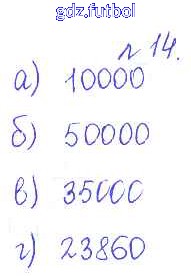 gdz.futbol
№ 14.
а) 10000
б) 50000
в) 35000
г) 23860